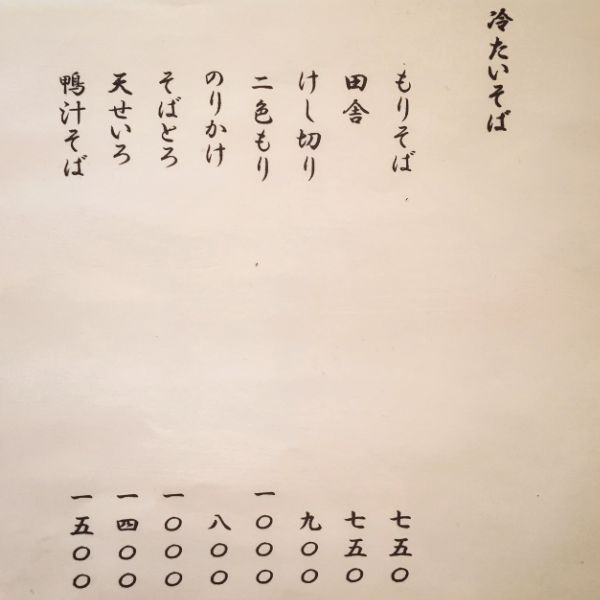 冷たいそば
もりそば 七五〇
田舎 七五〇
けし切り 九〇〇
二色もり 一〇〇〇
のりかけ 八〇〇
そばとろ 一〇〇〇
天せいろ 一四〇〇
鴨汁そば 一五〇〇